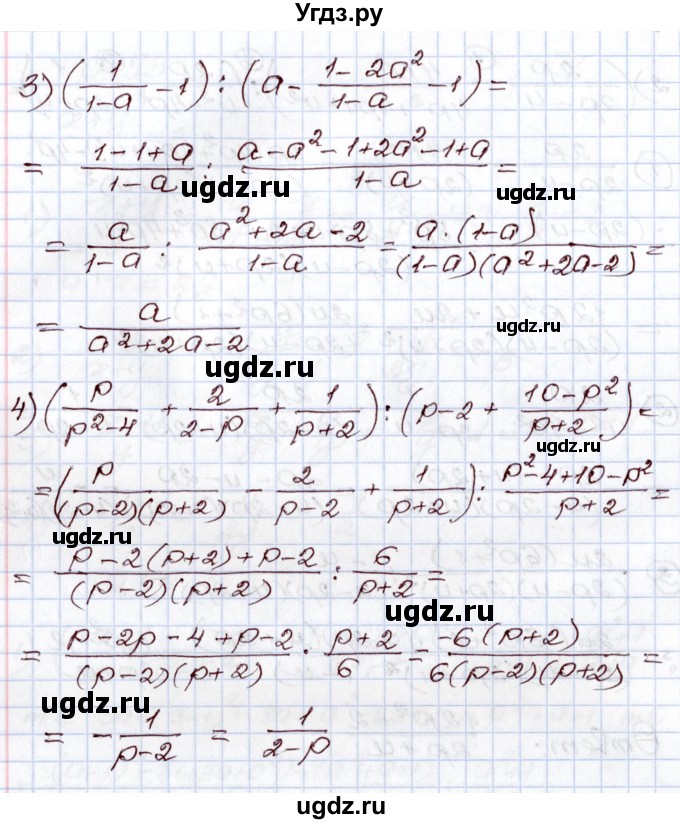 Угдз.ру
3) (1/(1-a) - 1) : (a - (1-2a²)/(1-a) - 1) =
= (1-1+a)/(1-a) : (a-a²-1+2a²-1+a)/(1-a) =
ugdz.ru ugdz.ru
= a/(1-a) : (a²+2a-2)/(1-a) = (a·(1-a))/((1-a)(a²+2a-2)) =
= a/(a²+2a-2)
ugdz.ru
ugdz.ru
4) (p/(p²-4) + 2/(2-p) + 1/(p+2)) : (p-2 + (10-p²)/(p+2)) =
ugdz.ru
= (p/((p-2)(p+2)) - 2/(p-2) + 1/(p+2)) : (p²-4+10-p²)/(p+2) =
ugdz.ru
= (p-2(p+2)+p-2)/((p-2)(p+2)) : 6/(p+2) =
ugdz.ru
= (p-2p-4+p-2)/((p-2)(p+2)) · (p+2)/6 = (-6(p+2))/(6(p-2)(p+2)) =
ugdz.ru ugdz.ru
= -1/(p-2) = 1/(2-p)
ugdz.ru